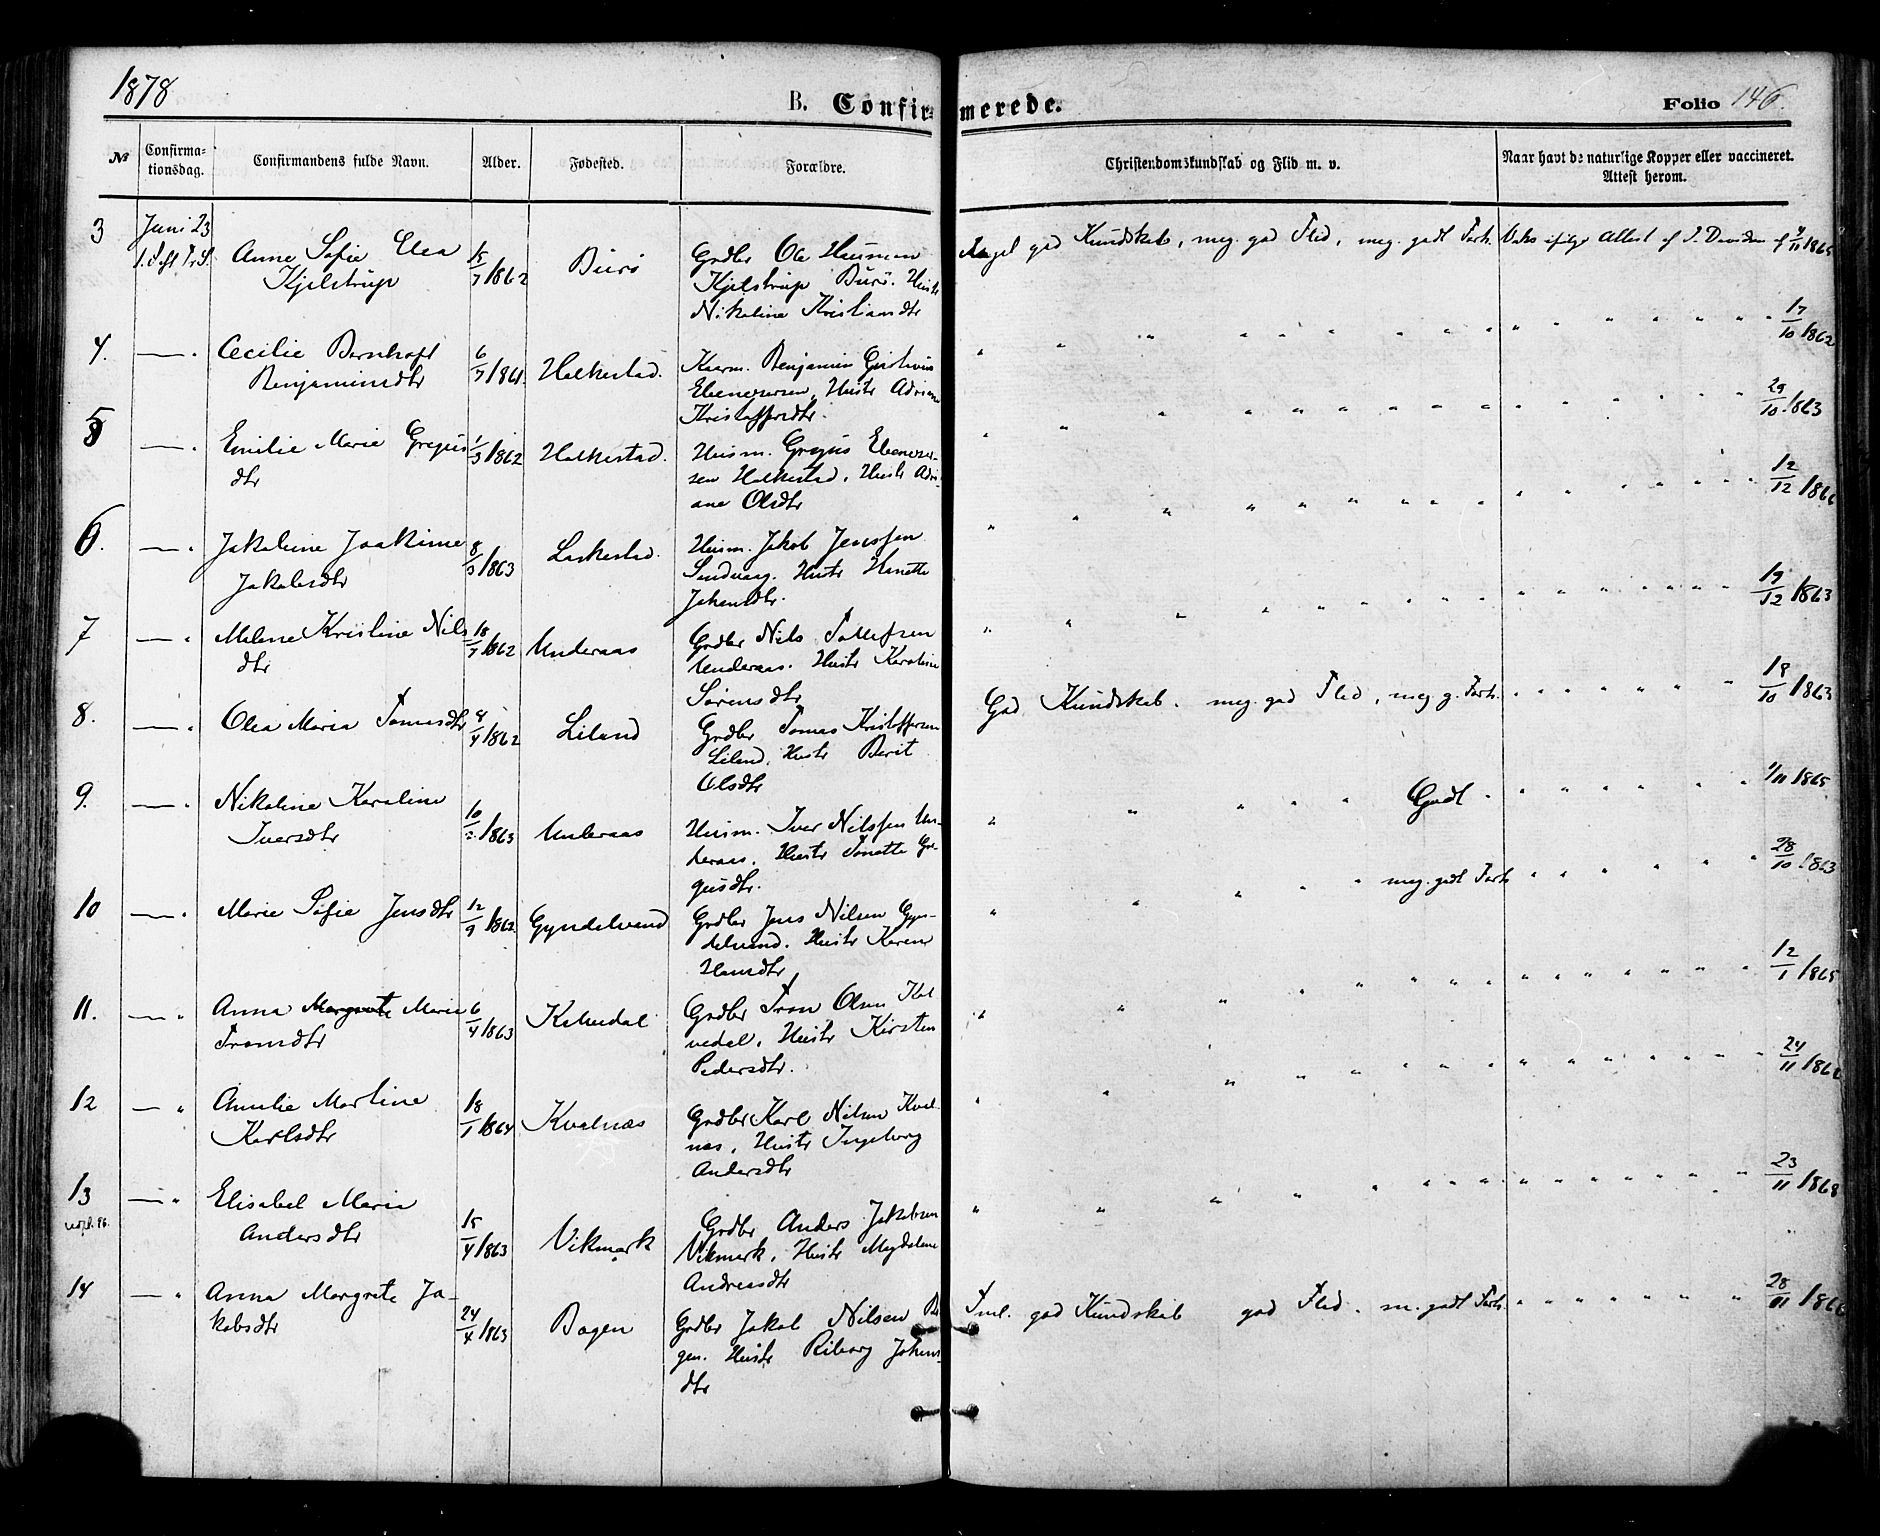 1878
B. Confirmerede.
Folio 146.
No
Confirmationsdag.
Confirmandens fulde Navn.
Alder.
Fødested.
Forældre.
Christendomskundskab og Flid m. v.
Naar havt de naturlige Kopper eller vaccineret. Attest herom.
3
Juni 23
Anne Sofie Elea
Kjelstrup
15/7 1862
Burø
Grdbr Ole Hauman
Kjelstrup Burø. Hustr
Nikoline Kristiansdtr
god Kundskab, meg. god Flid, meg. godt Forh.
Attest af J. Davidsen
4.
— "
Cecilie Bernhoft
Benjaminsdtr
6/7 1861.
Holkestad.
Benjamin
Ebenezersen, Hustr Adriane
Kristoffersdtr.
17/10 1862
5
— "
Emilie Marie Gregus
dtr
1/3 1862
Holkestad.
Husm. Gregus Ebenezer-
sen Holkestad. Hustr Adri-
ane Olsdtr
29/10 1863
6.
— "
Jakobine Joakime
Jakobsdtr
8/3 1863
Laskestad.
Husm. Jakob Jenssen
Sandvaag. Hustr Hanette
Johansdtr.
12/12
7
— "
Milene Kristine Nils
dtr
18/7 1862
Underaas
Grdbr Nils Tollefsen
Underaas. Hustr Karoline
Sørensdtr
19/12 1863
8.
— "
Olea Maria Tomasdtr
4/4 1862
Liland
Grdbr Tomas Kristoffersen
Liland, Hustr Berit
Olsdtr
God Kundskab. meg. god Flid, meg g. Forh.
18/10 1863
9.
— "
Nikoline Karoline
Iversdtr
10/2 1863
Underaas
Husm. Iver Nilssen Un-
deraas. Hustr Tonette Gre
gusdtr.
Godt
1/11 1865
10
— "
Marie Sofie Jensdtr
12/9 1862
Gyndelvand
Grdbr Jens Nilsen Gyn-
delvand. Hustr Karen
Hansdtr
meg. godt Forh
28/10 1863
11.
— "
Anna Margrete Marie
Tronsdtr
6/4 1863
Kalvedal
Grdbr Tron Olsen Kal
vedal, Hustr Kirsten
Pedersdtr.
12/1 1865
12
— "
Amelie Martine
Karlsdtr
18/1 1864
Kvalnæs
Grdbr Karl Nilsen Kval
næs, Hustr Ingeborg
Andersdtr
24/11
13
— "
Elisabet Maria
Andersdtr
15/4 1863
Vikmark
Grdbr Anders Jakobsen
Vikmark, Hustr Magdalene
Andreasdtr
23/11 1868
14
— "
Anna Margrete Ja-
kobsdtr
24/4 1863
Bogen
Grdbr Jakob Nilsen Bo
gen. Hustr Riborg Johans
dtr
Tml. god Kundskab god Flid. m. godt Forh.